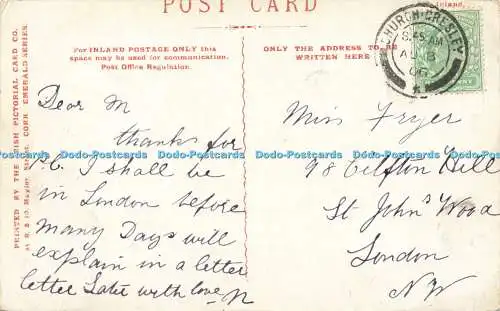 POST CARD
Inland,
For INLAND POSTAGE ONLY this
space may be used for communication.
Post Office Regulation.
ONLY THE ADDRESS TO BE
WRITTEN HERE
CHURCH·GRESLEY
8.45 AM
AU 8
06
PRINTED BY THE IRISH PICTORIAL CARD CO.
CORK. EMERALD SERIES.
Dear M
thanks for
P.C. I shall be
in London before
many Days will
explain in a letter
letter Later with love N
Miss Fryer
98 Clifton Hill
St John's Wood
London
NW
Dodo-Postcards Dodo-Postcards Dodo-Postcards Dodo-Postcards Dodo-Postcards